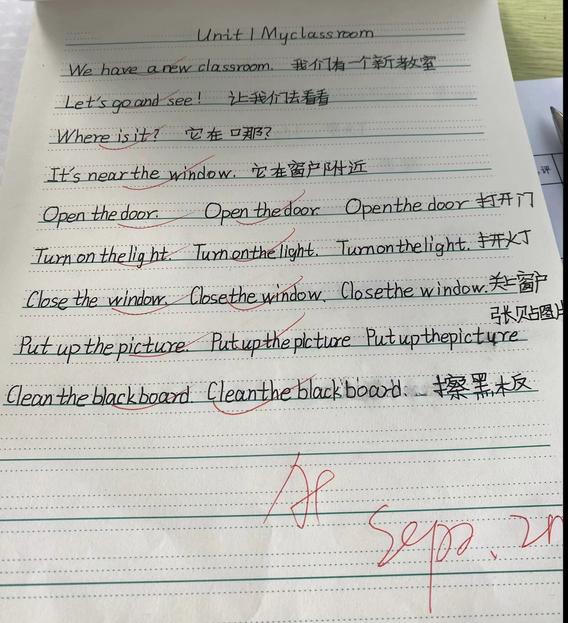 Unit 1 My classroom
We have a new classroom. 我们有一个新教室
Let's go and see! 让我们去看看
Where is it? 它在口那?
It's near the window. 它在窗户附近
Open the door. Open the door. Open the door 打开门
Turn on the light. Turn on the light. Turn on the light. 打开灯
Close the window. Close the window. Close the window. 关上窗户
张贴图片
Put up the picture. Put up the picture Put up the picture
Clean the blackboard. Clean the blackboard. 擦黑板
A+